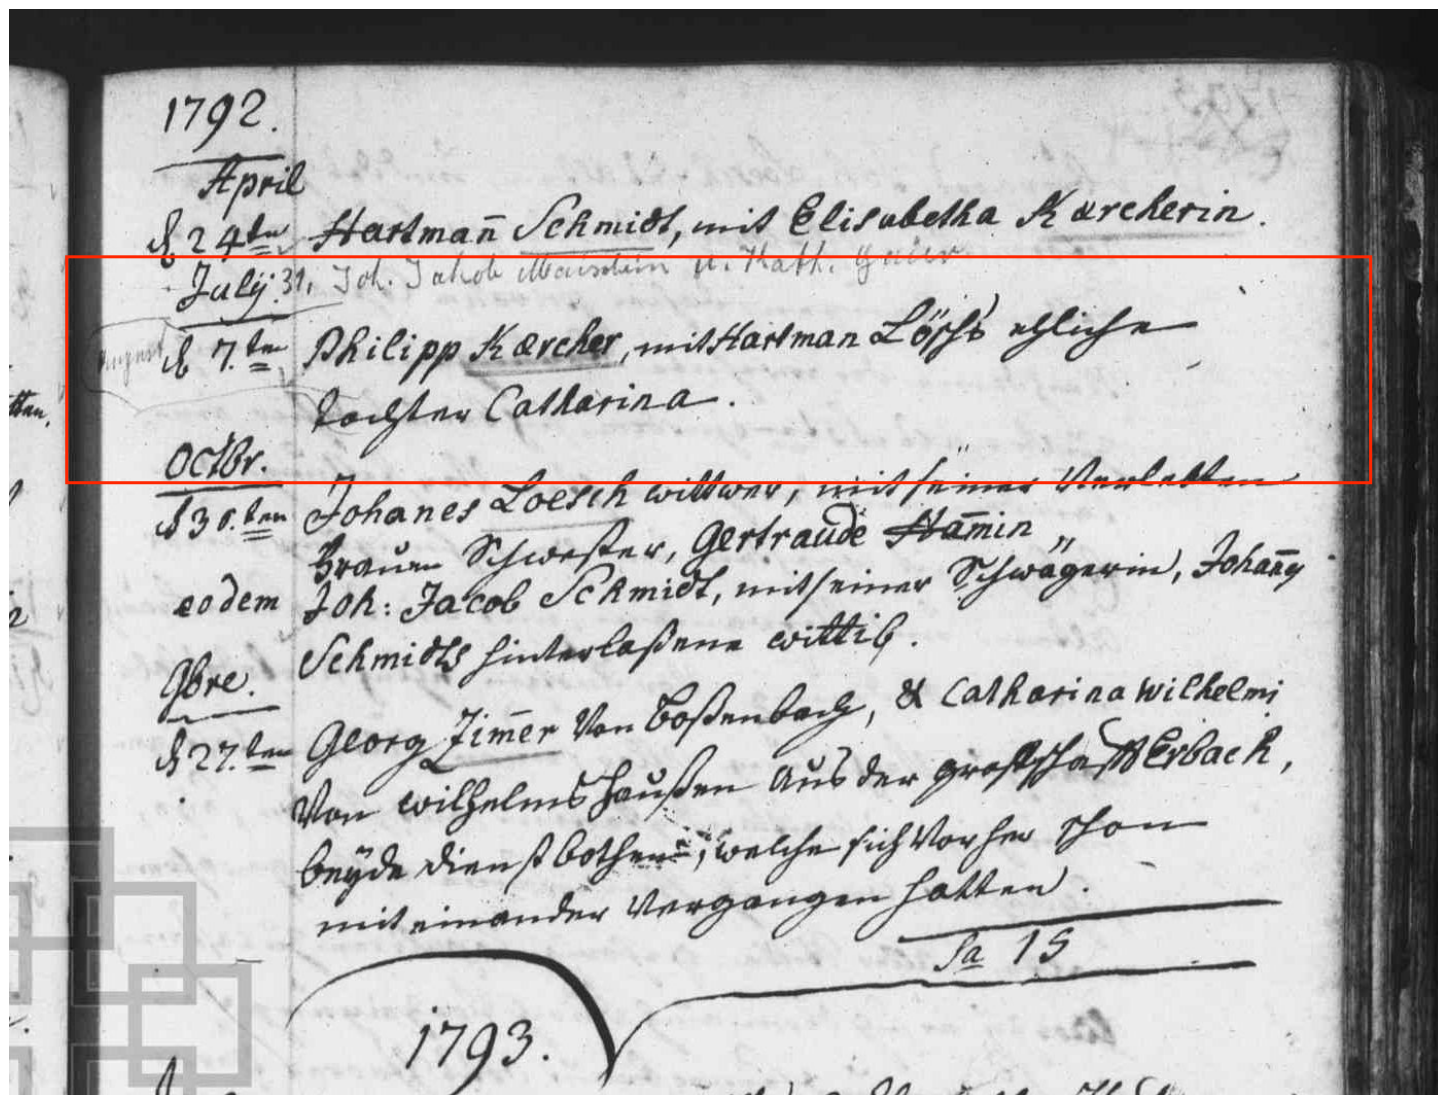 1792.
April
d 24ten Hartman̄ Schmidt, mit Elisabetha Kærcherin.
Julÿ. 31. Joh. Jakob u. Kath.
August d 7.ten Philipp Kærcher, mit Hartman Lösch's ehliche
tochter Catharina.
Octbr.
d 30.ten Johanes Loesch wittwer, mit seiner Verlebten
Frauen Schwester, Gertraude Ham̄in
eodem Joh: Jacob Schmidt, mit seiner Schwägerin, Johan̄
Schmidts hinterlaßene wittib.
9bre.
d 27.ten Georg Zim̄er Von Boßenbach, & Catharina Wilhelmi
Von Wilhelmshaußen aus der grafschafft Erbach,
beÿde dienstbothen, welche sich Vorher schon
mit einander Vergangen hatten.
Sa 15
1793.